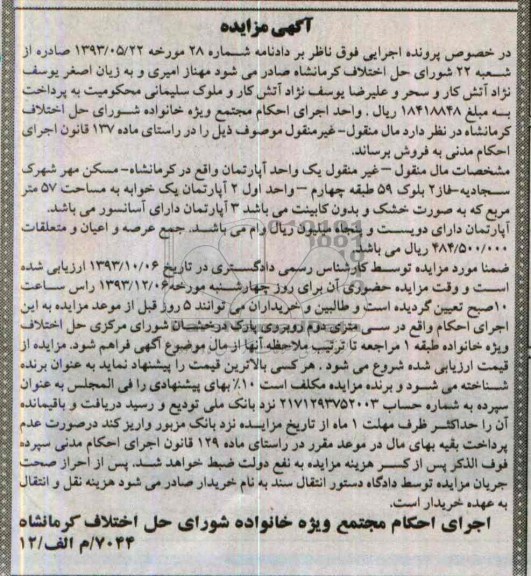 آگهی مزایده
در خصوص پرونده اجرایی فوق ناظر بر دادنامه شماره ۲۸ مورخه ۱۳۹۳/۰۵/۲۲ صادره از
شعبه ۲۲ شورای حل اختلاف کرمانشاه صادر می شود مهناز امیری و به زیان اصغر یوسف
نژاد آتش کار و سحر و علیرضا یوسف نژاد آتش کار و ملوک سلیمانی محکومیت به پرداخت
به مبلغ ۱۸۴۱۸۸۴۸ ریال . واحد اجرای احکام مجتمع ویژه خانواده شورای حل اختلاف
کرمانشاه در نظر دارد مال منقول-غیرمنقول موصوف ذیل را در راستای ماده ۱۳۷ قانون اجرای
احکام مدنی به فروش برساند.
مشخصات مال منقول –غیر منقول یک واحد آپارتمان واقع در کرمانشاه- مسکن مهر شهرک
سجادیه-فاز۲ بلوک ۵۹ طبقه چهارم –واحد اول ۲ آپارتمان یک خوابه به مساحت ۵۷ متر
مربع که به صورت خشک و بدون کابینت می باشد ۳ آپارتمان دارای آسانسور می باشد.
آپارتمان دارای دویست و پنجاه میلیون ریال وام می باشد. جمع عرصه و اعیان و متعلقات
۴۸۴/۵۰۰/۰۰۰ ریال می باشد
ضمنا مورد مزایده توسط کارشناس رسمی دادگستری در تاریخ ۱۳۹۳/۱۰/۰۶ ارزیابی شده
است و وقت مزایده حضوری آن برای روز چهارشنبه مورخه ۱۳۹۳/۱۲/۰۶ راس ساعت
۱۰صبح تعیین گردیده است و طالبین و خریداران می توانند ۵ روز قبل از موعد مزایده به این
اجرای احکام واقع در سی متری دوم روبروی پارک درخشان شورای مرکزی حل اختلاف
ویژه خانواده طبقه ۱ مراجعه تا ترتیب ملاحظه آنها از مال موضوع آگهی فراهم شود. مزایده از
قیمت ارزیابی شده شروع می شود . هر کسی بالاترین قیمت را پیشنهاد نماید به عنوان برنده
شناخته می شود و برنده مزایده مکلف است ۱۰٪ بهای پیشنهادی را فی المجلس به عنوان
سپرده به شماره حساب ۲۱۷۱۲۹۳۷۵۲۰۰۳ نزد بانک ملی تودیع و رسید دریافت و باقیمانده
آن را حداکثر ظرف مهلت ۱ ماه از تاریخ مزایده نزد بانک مزبور واریز کند درصورت عدم
پرداخت بقیه بهای مال در موعد مقرر در راستای ماده ۱۲۹ قانون اجرای احکام مدنی سپرده
فوق الذکر پس از کسر هزینه مزایده به نفع دولت ضبط خواهد شد. پس از احراز صحت
جریان مزایده توسط دادگاه دستور انتقال سند به نام خریدار صادر می شود هزینه نقل و انتقال
به عهده خریدار است.
اجرای احکام مجتمع ویژه خانواده شورای حل اختلاف کرمانشاه
۷۰۴۴/م الف/۱۲